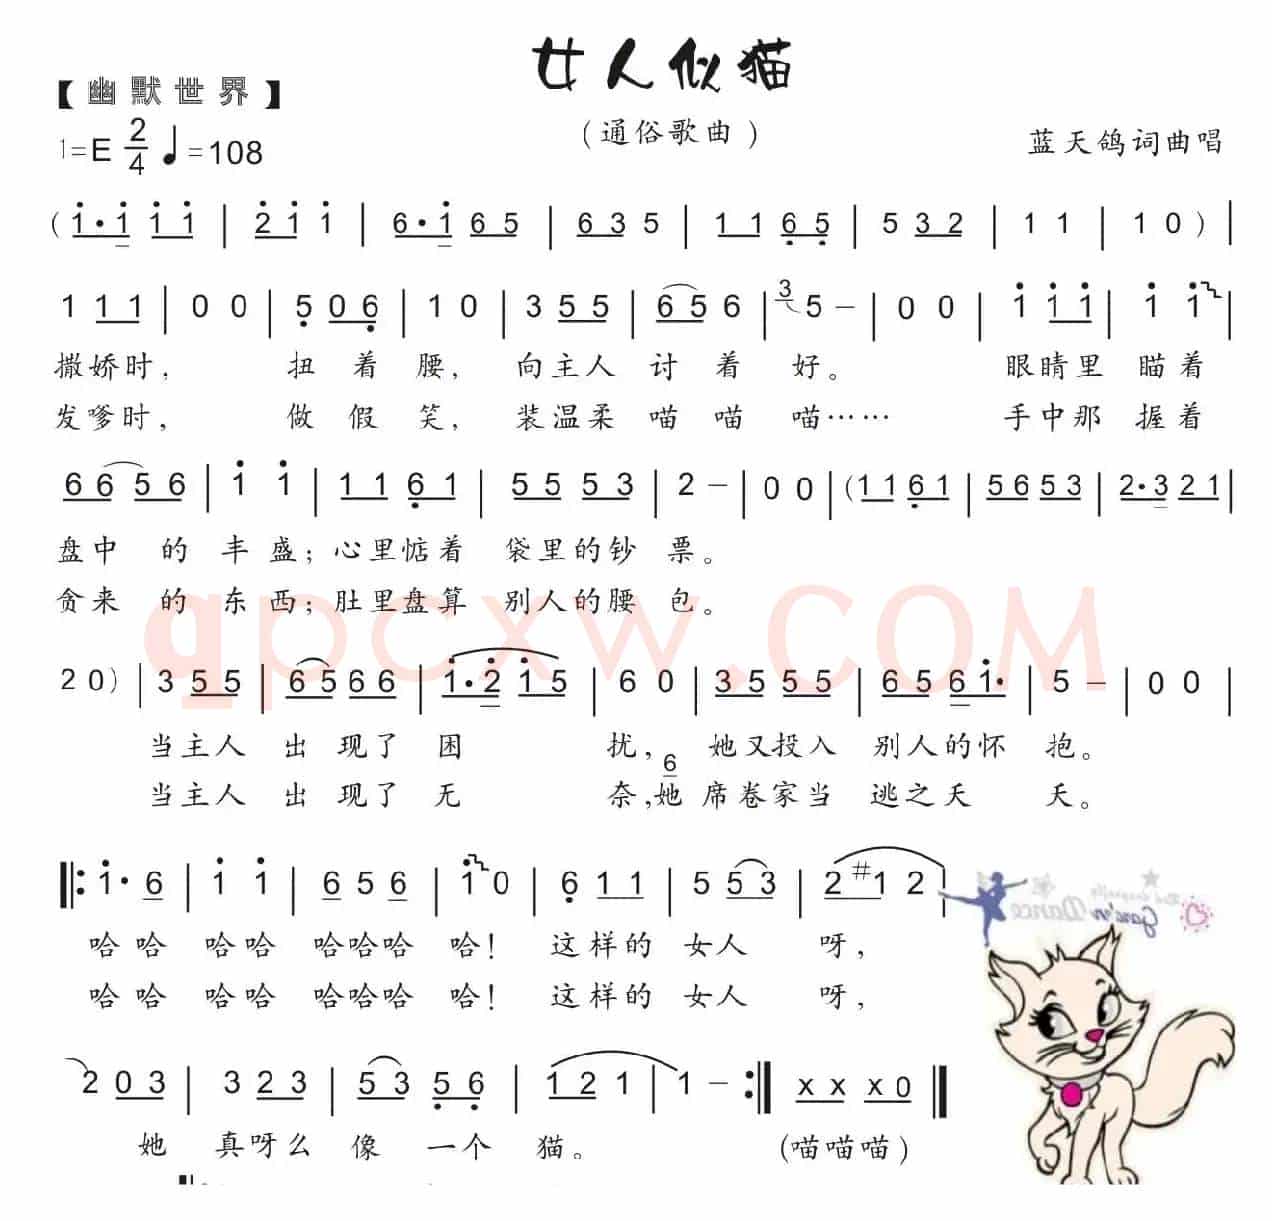 女人似猫
【幽默世界】
(通俗歌曲)
1=E 2/4 ♩=108
蓝天鸽词曲唱
( 1·1 1 1 | 2 1 1 | 6·1 6 5 | 6 3 5 | 1 1 6 5 | 5 3 2 | 1 1 | 1 0 ) |
1 1 1 | 0 0 | 5 0 6 | 1 0 | 3 5 5 | 6 5 6 | 3 5 – | 0 0 | 1 1 1 | 1 1 |
撒娇时, 扭着腰, 向主人讨着好。 眼睛里瞄着
发嗲时, 做假笑, 装温柔喵喵喵…… 手中那握着
6 6 5 6 | 1 1 | 1 1 6 1 | 5 5 5 3 | 2 – | 0 0 | ( 1 1 6 1 | 5 6 5 3 | 2·3 2 1 |
盘中的丰盛; 心里惦着袋里的钞票。
贪来的东西; 肚里盘算别人的腰包。
qpcxw.COM
2 0 ) | 3 5 5 | 6 5 6 6 | 1·2 1 5 | 6 0 | 3 5 5 5 | 6 5 6 1· | 5 – | 0 0 |
当主人出现了困扰, 她又投入别人的怀抱。
6
当主人出现了无奈,她席卷家当逃之夭夭。
‖: 1· 6 | 1 1 | 6 5 6 | 1 0 | 6 1 1 | 5 5 3 | 2 #1 2 |
哈哈 哈哈 哈哈哈 哈! 这样的女人呀,
哈哈 哈哈 哈哈哈 哈! 这样的女人呀,
2 0 3 | 3 2 3 | 5 3 5 6 | 1 2 1 | 1 – :‖ x x x 0 ‖
她真呀么像一个猫。 (喵喵喵)